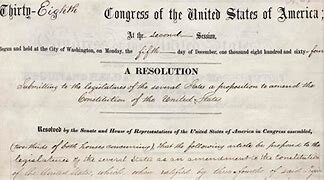 Thirty-Eighth Congress of the United States of America;
At the second Session,
Begun and held at the City of Washington, on Monday, the fifth day of December, one thousand eight hundred and sixty-four
A RESOLUTION
Submitting to the legislatures of the several States a proposition to amend the
Constitution of the United States.
Resolved by the Senate and House of Representatives of the United States of America in Congress assembled,
(two thirds of both houses concurring), that the following article be proposed to the
legislatures of the several States as an amendment to the constitution
of the United States, which, when ratified by three-fourths of said